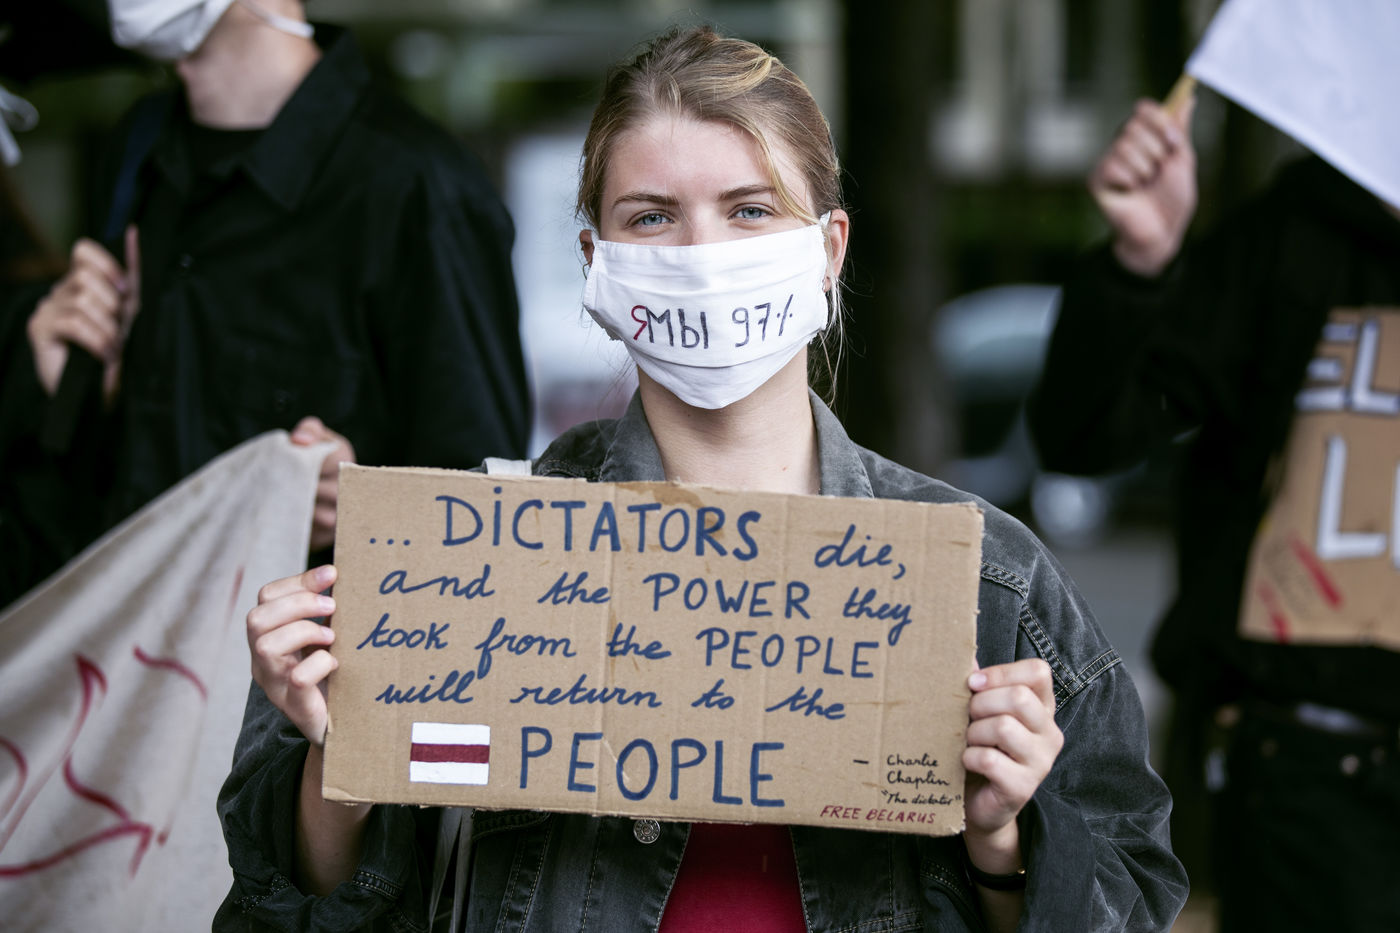 ЯМЫ 97%
... DiCTATORS die,
and the POWER they
took from the PEOPLE
will return to the
PEOPLE
— Charlie
Chaplin
"The dictator"
FREE BELARUS
EL
LO